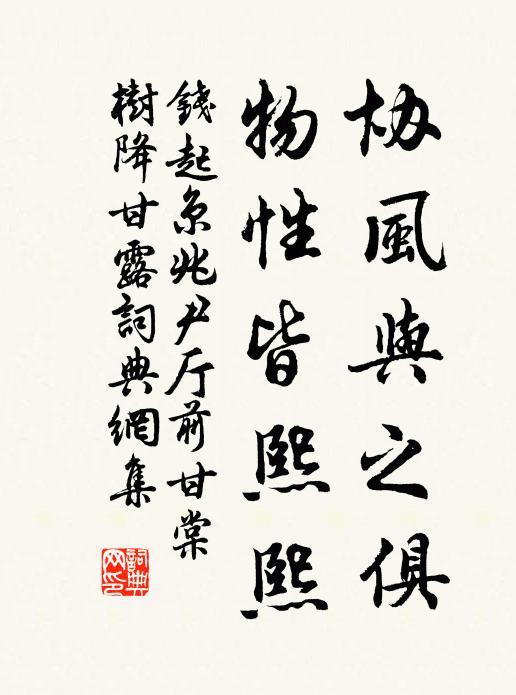 协風與之俱
物性皆熙熙
錢起京兆尹厅前甘棠
樹降甘露詞典網集
詞典
网印